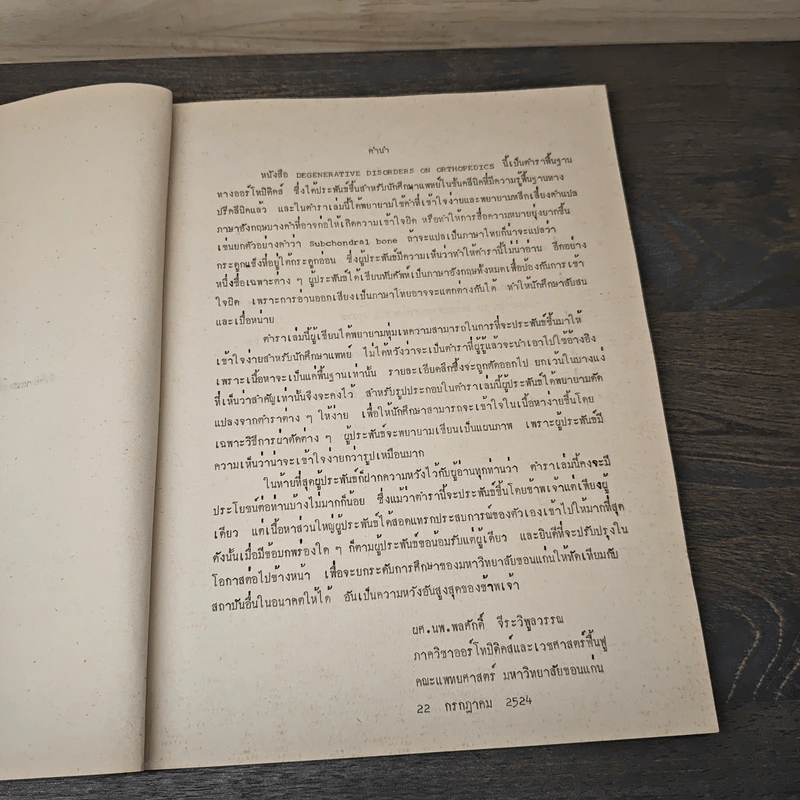 คำนำ
หนังสือ DEGENERATIVE DISORDERS ON ORTHOPEDICS นี้เป็นตำราพื้นฐาน
ทางออร์โทปิดิคส์ ซึ่งได้ประพันธ์ขึ้นสำหรับนักศึกษาแพทย์ในชั้นคลีนิคที่มีความรู้พื้นฐานทาง
ปรีคลีนิคแล้ว และในตำราเล่มนี้ได้พยายามใช้คำที่เข้าใจง่ายและพยายามหลีกเลี่ยงคำแปล
ภาษาอังกฤษบางคำที่อาจก่อให้เกิดความเข้าใจผิด หรือทำให้การสื่อความหมายยุ่งยากขึ้น
เช่นยกตัวอย่างคำว่า Subchondral bone ถ้าจะแปลเป็นภาษาไทยก็น่าจะแปลว่า
กระดูกแข็งที่อยู่ใต้กระดูกอ่อน ซึ่งผู้ประพันธ์มีความเห็นว่าทำให้ตำรานี้ไม่น่าอ่าน อีกอย่าง
หนึ่งชื่อเฉพาะต่าง ๆ ผู้ประพันธ์ได้เขียนทับศัพท์เป็นภาษาอังกฤษทั้งหมดเพื่อป้องกันการเข้า
ใจผิด เพราะการอ่านออกเสียงเป็นภาษาไทยอาจจะแตกต่างกันได้ ทำให้นักศึกษาสับสน
และเบื่อหน่าย
ตำราเล่มนี้ผู้เขียนได้พยายามทุ่มเทความสามารถในการที่จะประพันธ์ขึ้นมาให้
เข้าใจง่ายสำหรับนักศึกษาแพทย์ ไม่ได้หวังว่าจะเป็นตำราที่ผู้รู้แล้วจะนำเอาไปใช้อ้างอิง
เพราะเนื้อหาจะเป็นแค่พื้นฐานเท่านั้น รายละเอียดลึกซึ้งจะถูกตัดออกไป ยกเว้นในบางแง่
ที่เห็นว่าสำคัญเท่านั้นจึงจะคงไว้ สำหรับรูปประกอบในตำราเล่มนี้ผู้ประพันธ์ได้พยายามดัด
แปลงจากตำราต่าง ๆ ให้ง่าย เพื่อให้นักศึกษาสามารถจะเข้าใจในเนื้อหาง่ายขึ้นโดย
เฉพาะวิธีการผ่าตัดต่าง ๆ ผู้ประพันธ์จะพยายามเขียนเป็นแผนภาพ เพราะผู้ประพันธ์มี
ความเห็นว่าน่าจะเข้าใจง่ายกว่ารูปเหมือนมาก
ในท้ายที่สุดผู้ประพันธ์ก็ฝากความหวังไว้กับผู้อ่านทุกท่านว่า ตำราเล่มนี้คงจะมี
ประโยชน์ต่อท่านบ้างไม่มากก็น้อย ซึ่งแม้ว่าตำรานี้จะประพันธ์ขึ้นโดยข้าพเจ้าแต่เพียงผู้
เดียว แต่เนื้อหาส่วนใหญ่ผู้ประพันธ์ได้สอดแทรกประสบการณ์ของตัวเองเข้าไปให้มากที่สุด
ดังนั้นเมื่อมีข้อบกพร่องใด ๆ ก็ตามผู้ประพันธ์ขอน้อมรับแต่ผู้เดียว และยินดีที่จะปรับปรุงใน
โอกาสต่อไปข้างหน้า เพื่อจะยกระดับการศึกษาของมหาวิทยาลัยขอนแก่นให้ทัดเทียมกับ
สถาบันอื่นในอนาคตให้ได้ อันเป็นความหวังอันสูงสุดของข้าพเจ้า
ผศ.นพ.พลศักดิ์ จีระวิพูลวรรณ
ภาควิชาออร์โทปิดิคส์และเวชศาสตร์ฟื้นฟู
คณะแพทยศาสตร์ มหาวิทยาลัยขอนแก่น
22 กรกฎาคม 2524